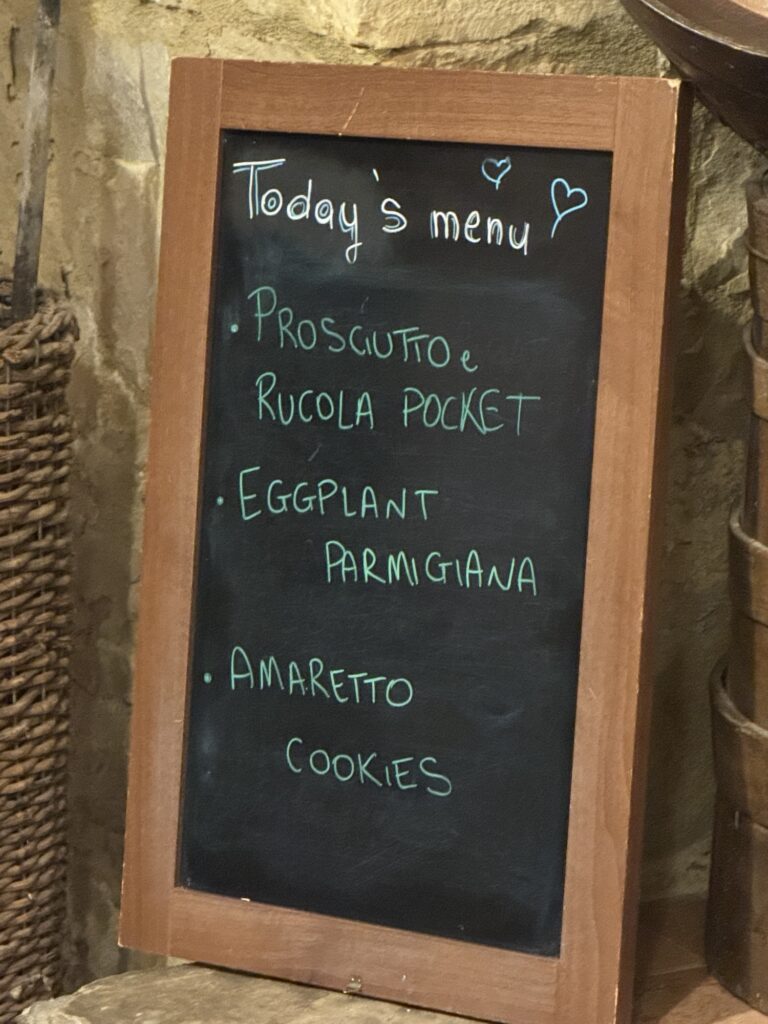 Today's menu
• PROSCIUTTO e
RUCOLA POCKET
• EGGPLANT
PARMIGIANA
• AMARETTO
COOKIES